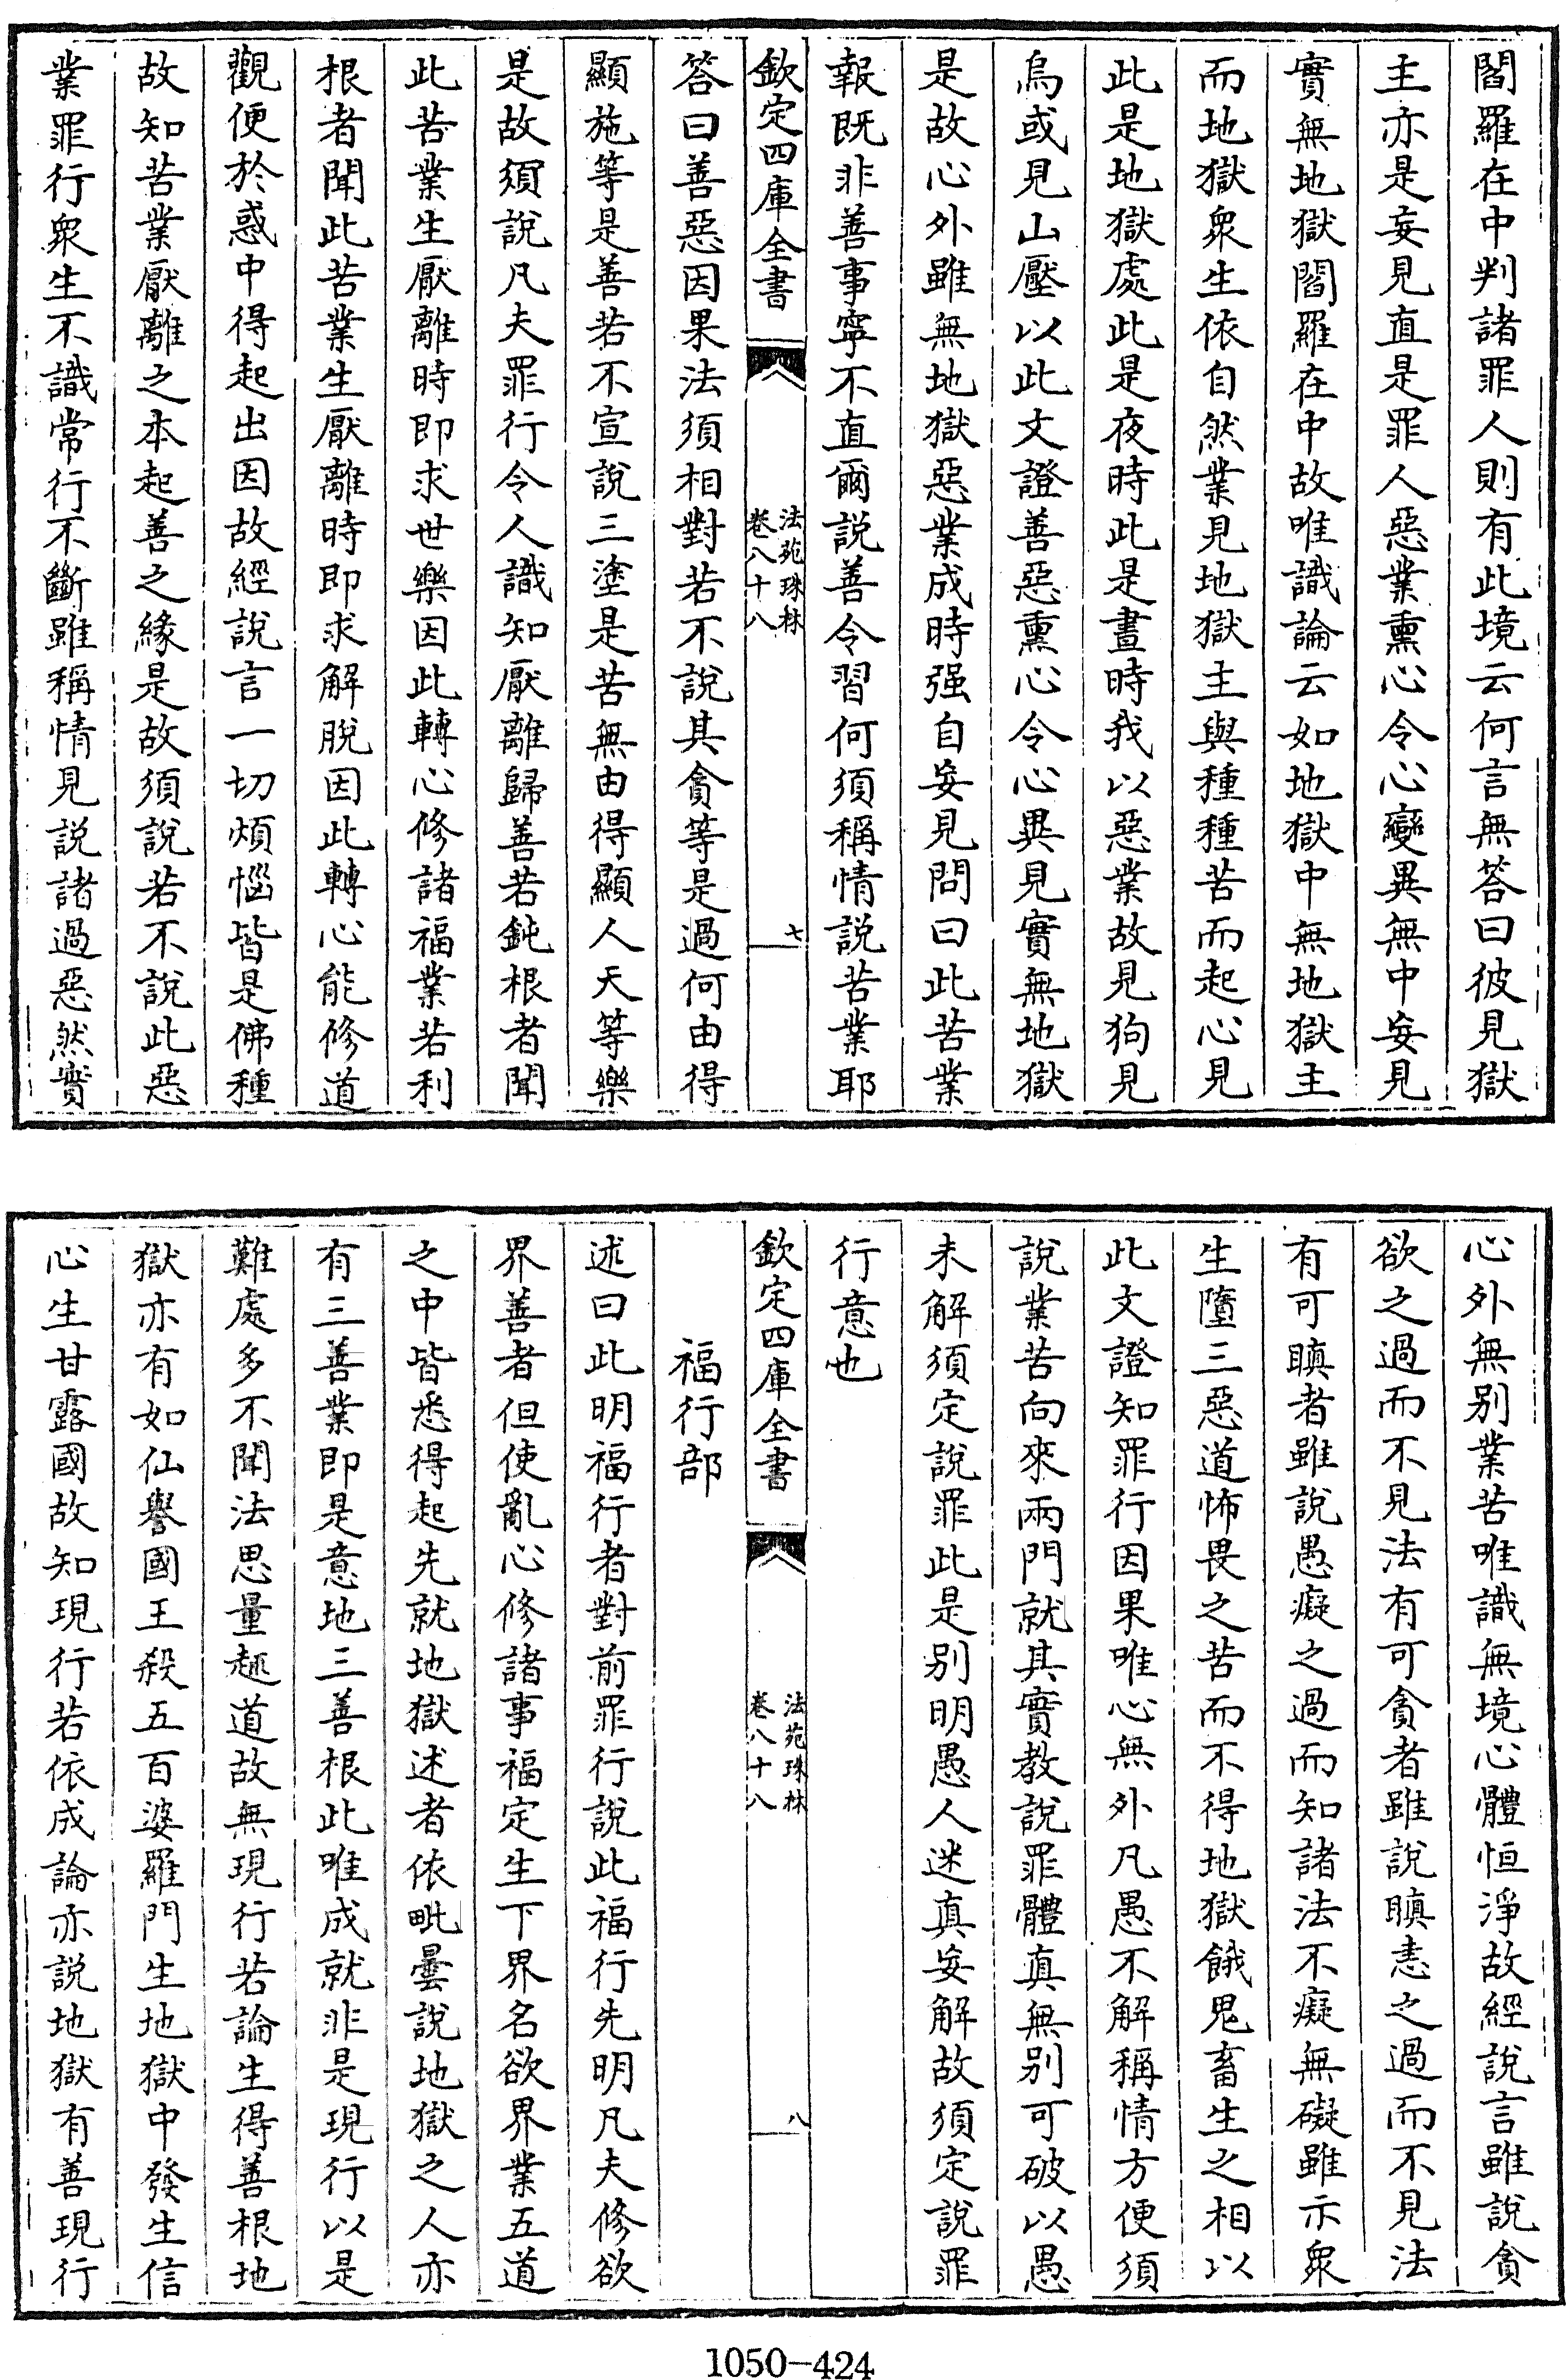 閻羅在中判諸罪人則有此境云何言無答曰彼見獄
主亦是妄見直是罪人惡業熏心令心變異無中妄見
實無地獄閻羅在中故唯識論云如地獄中無地獄主
而地獄衆生依自然業見地獄主與種種苦而起心見
此是地獄處此是夜時此是晝時我以惡業故見狗見
烏或見山壓以此文證善惡熏心令心異見實無地獄
是故心外雖無地獄惡業成時强自妄見問曰此苦業
報既非善事寧不直爾説善令習何須稱情説苦業耶
欽定四庫全書
法苑珠林
卷八十八
七
答曰善惡因果法須相對若不說其貪等是過何由得
顯施等是善若不宣說三塗是苦無由得顯人天等樂
是故須說凡夫罪行令人識知厭離歸善若鈍根者聞
此苦業生厭離時即求世樂因此轉心修諸福業若利
根者聞此苦業生厭離時即求解脫因此轉心能修道
觀便於惑中得起出因故經說言一切煩惱皆是佛種
故知苦業厭離之本起善之緣是故須說若不說此惡
業罪行衆生不識常行不斷雖稱情見説諸過惡然實
心外無别業苦唯識無境心體恒淨故經說言雖說貪
欲之過而不見法有可貪者雖說瞋恚之過而不見法
有可瞋者雖說愚癡之過而知諸法不癡無礙雖示衆
生墮三惡道怖畏之苦而不得地獄餓鬼畜生之相以
此文證知罪行因果唯心無外凡愚不解稱情方便須
說業苦向來兩門就其實教說罪體真無别可破以愚
未解須定說罪此是别明愚人迷真妄解故須定說罪
行意也
欽定四庫全書
法苑珠林
卷八十八
八
福行部
述曰此明福行者對前罪行説此福行先明凡夫修欲
界善者但使亂心修諸事福定生下界名欲界業五道
之中皆悉得起先就地獄述者依毗曇說地獄之人亦
有三善業即是意地三善根此唯成就非是現行以是
難處多不聞法思量趣道故無現行若論生得善根地
獄亦有如仙譽國王殺五百婆羅門生地獄中發生信
心生甘露國故知現行若依成論亦説地獄有善現行
1050-424